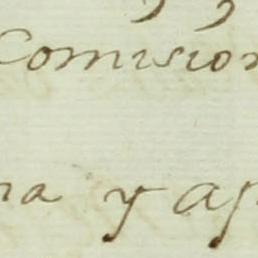 Comision
na y ap